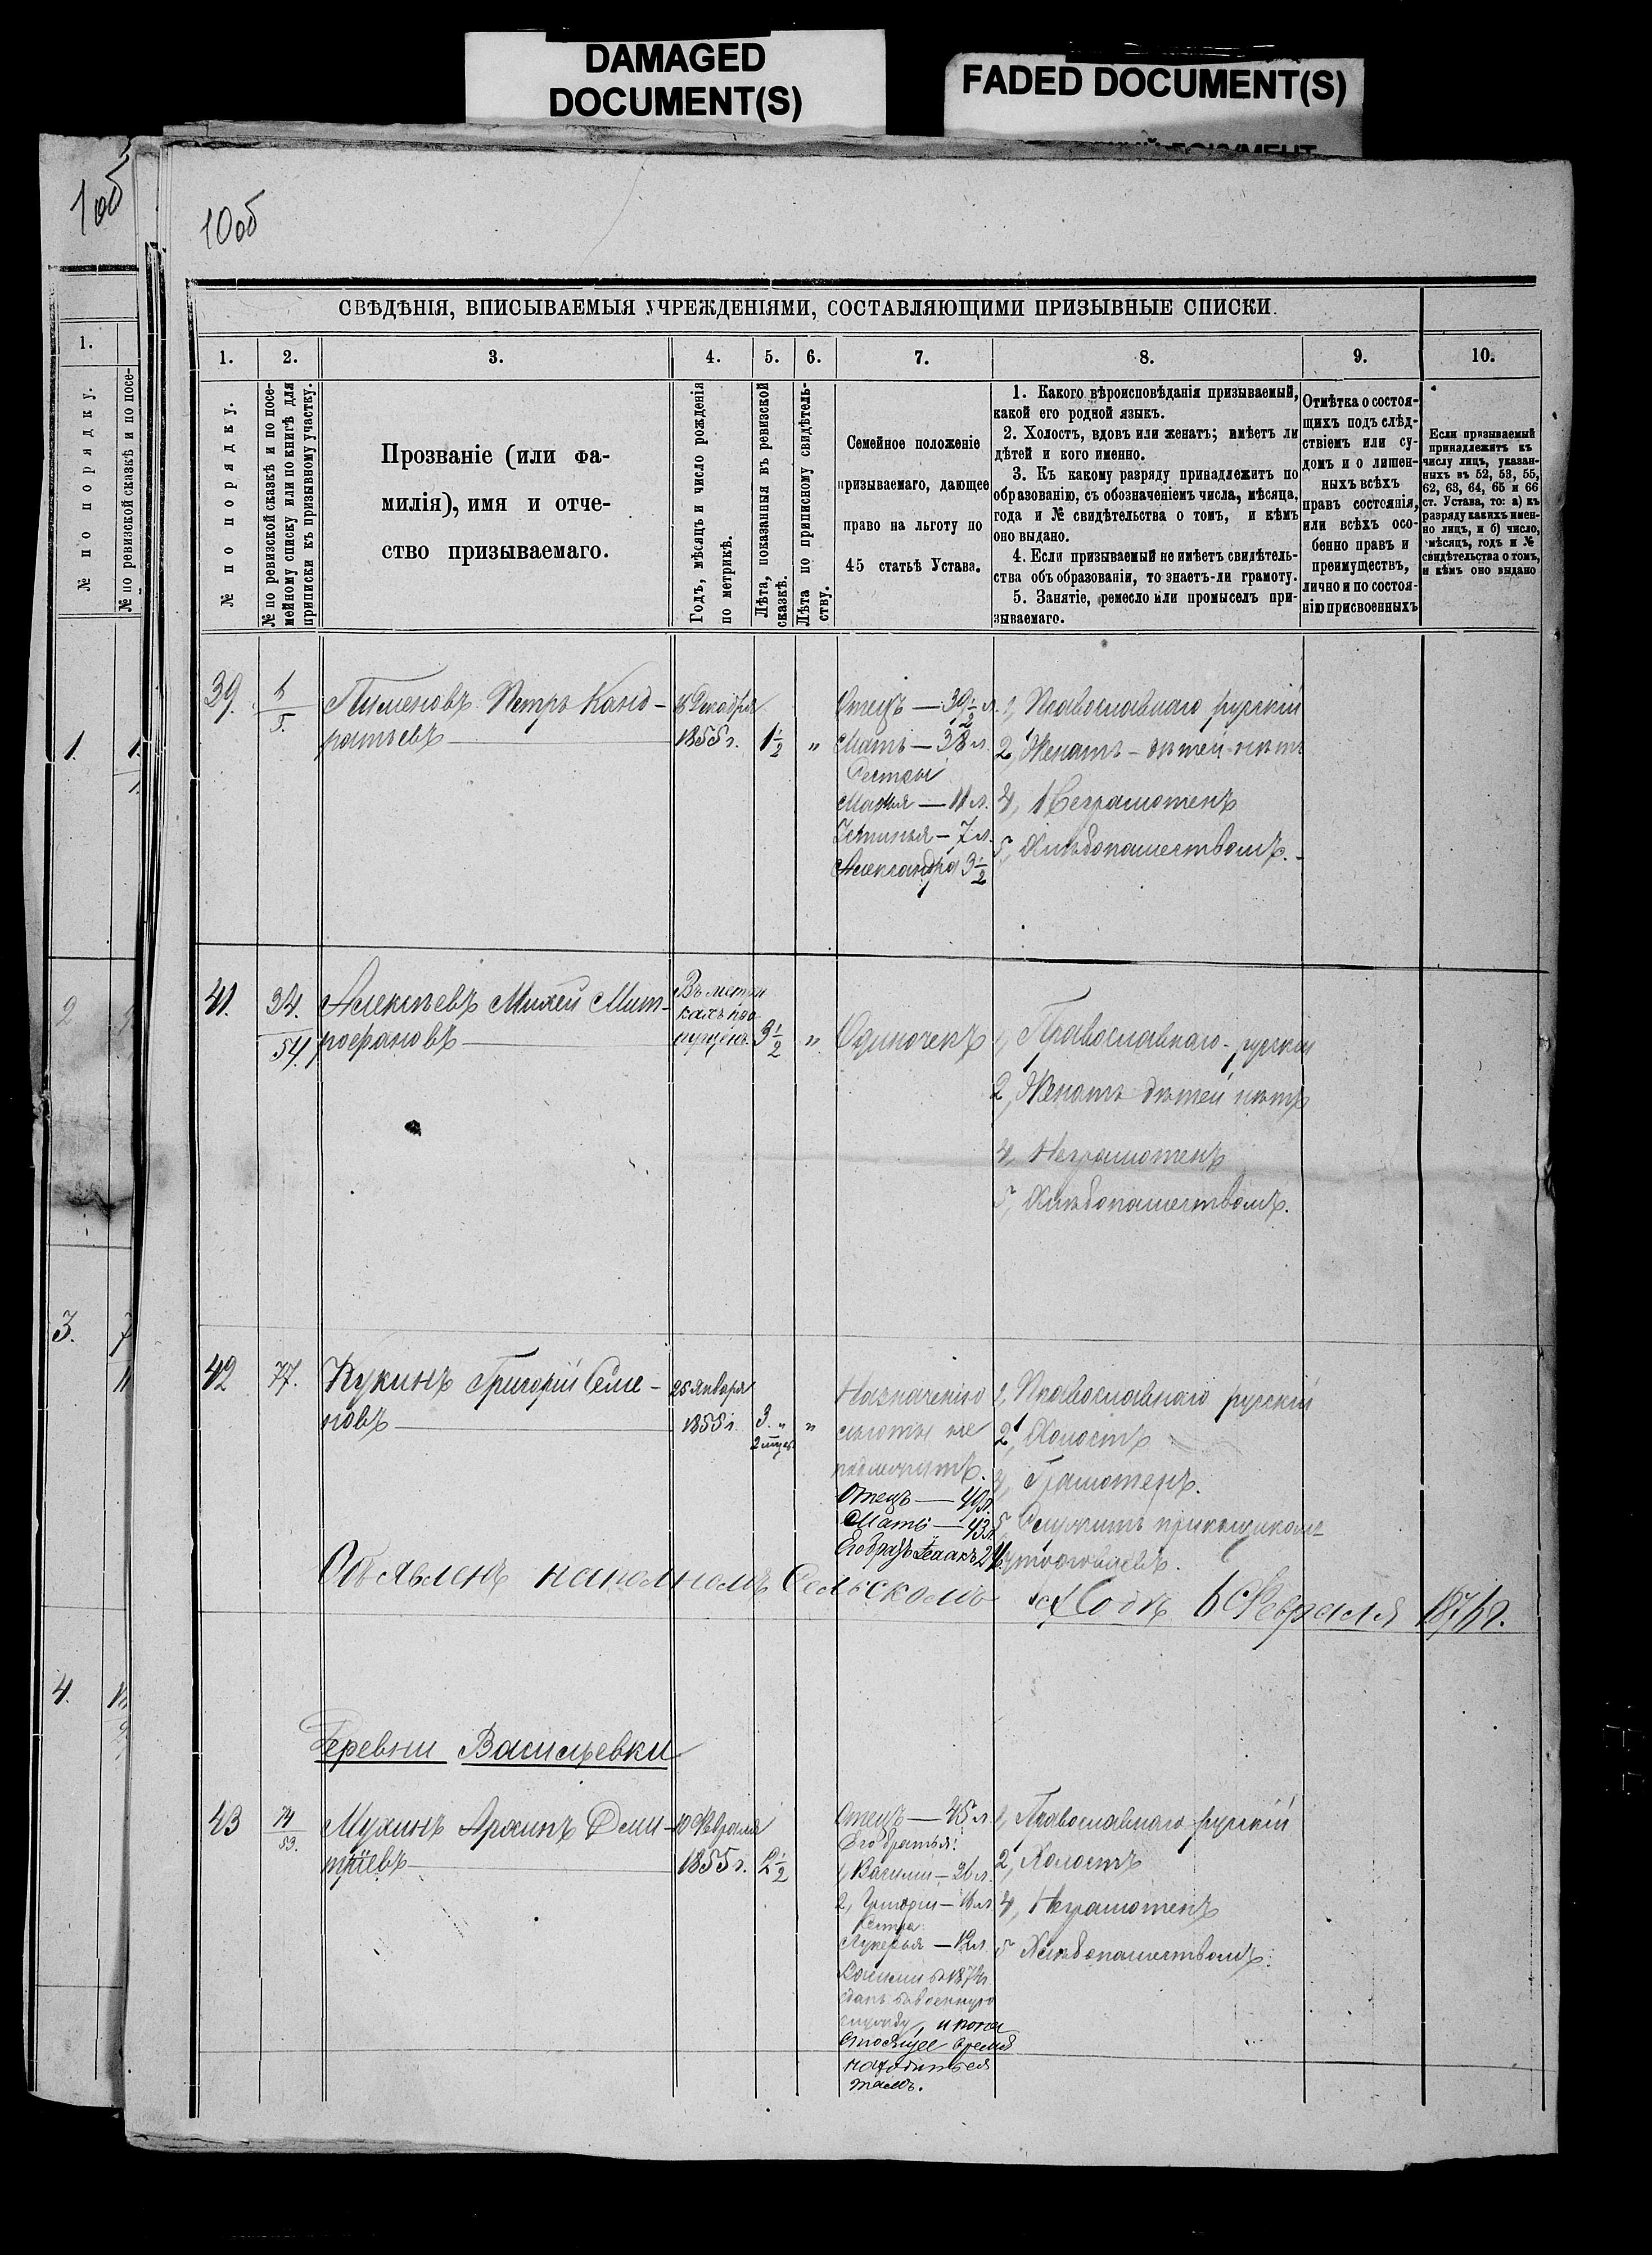 DAMAGED
DOCUMENT(S)
FADED DOCUMENT(S)
1об
10об
СВѢДѢНІЯ, ВПИСЫВАЕМЫЯ УЧРЕЖДЕНІЯМИ, СОСТАВЛЯЮЩИМИ ПРИЗЫВНЫЕ СПИСКИ.
1. 2. 3. 4. 5. 6. 7. 8. 9. 10.
№ по порядку.
№ по ревизской сказкѣ и по посе-
мейному списку или по книгѣ для
приписки къ призывному участку.
Прозваніе (или фа-
милія), имя и отче-
ство призываемаго.
Годъ, мѣсяцъ и число рожденія
по метрикѣ.
Лѣта, показанныя въ ревизской
сказкѣ.
Лѣта по приписному свидѣтель-
ству.
Семейное положеніе
призываемаго, дающее
право на льготу по
45 статьѣ Устава.
1. Какого вѣроисповѣданія призываемый,
какой его родной языкъ.
2. Холостъ, вдовъ или женатъ; имѣетъ ли
дѣтей и кого именно.
3. Къ какому разряду принадлежитъ по
образованію, съ обозначеніемъ числа, мѣсяца,
года и № свидѣтельства о томъ, и кѣмъ
оно выдано.
4. Если призываемый не имѣетъ свидѣтель-
ства объ образованіи, то знаетъ-ли грамоту.
5. Занятіе, ремесло или промыселъ при-
зываемаго.
Отмѣтка о состоя-
щихъ подъ слѣд-
ствіемъ или су-
домъ и о лишен-
ныхъ всѣхъ
правъ состоянія,
или всѣхъ осо-
бенно правъ и
преимуществъ,
лично и по состоя-
нію присвоенныхъ
Если призываемый
принадлежитъ къ
числу лицъ, указан-
ныхъ въ 52, 53, 55,
62, 63, 64, 65 и 66
ст. Устава, то: а) къ
разряду какихъ имен-
но лицъ, и б) число,
мѣсяцъ, годъ и №
свидѣтельства о томъ,
и кѣмъ оно выдано
39.
5.
Пименовъ Петръ Канд-
ратьевъ
Декабря
1855 г.
1 1/2
"
Отецъ — 39 1/2 л.
Мать — 38 л.
Сестры
Марья — 11 л.
Устинья — 7 л.
Александра 3 1/2
1, Православнаго русскій
2, Женатъ - дѣтей нѣтъ
4, Неграмотенъ
5, Хлѣбопашествомъ.
41.
34.
54.
Алексѣевъ Михей Мит-
рофановъ
Въ метри
кахъ про
пущенъ.
3 1/2
"
Одиночекъ
1, Православнаго - русскій
2, Женатъ дѣтей нѣтъ
4, Неграмотенъ
5, Хлѣбопашествомъ.
42
77.
Кукинъ Григорій Семе-
новъ
25 Января
1855 г.
3. "
"
Назначенію
льготы не
подлежитъ.
Отецъ — 49 л.
Мать — 43 л.
1, Православнаго русскій
2, Холостъ
4, Грамотенъ.
5, Служитъ прикащикомъ
Объявленъ на полномъ Сельскомъ сходѣ 6 Февраля 1876 г.
Деревни Васильевки
43
74
53.
Мухинъ Архипъ Дми-
тріевъ
10 Февраля
1855 г.
2 1/2
Отецъ — 45 л.
Его братья:
1, Василій — л.
2, Григорій — л.
Сестра
Лукерья — 12 л.
Василій въ 1874 г.
сданъ въ военную
службу, и по на
стоящее время
находиться
тамъ.
1, Православнаго русскій
2, Холостъ
4, Неграмотенъ
5 Хлѣбопашествомъ.